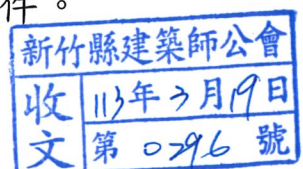 件。
新竹縣建築師公會
收文
113年3月19日
第0296號